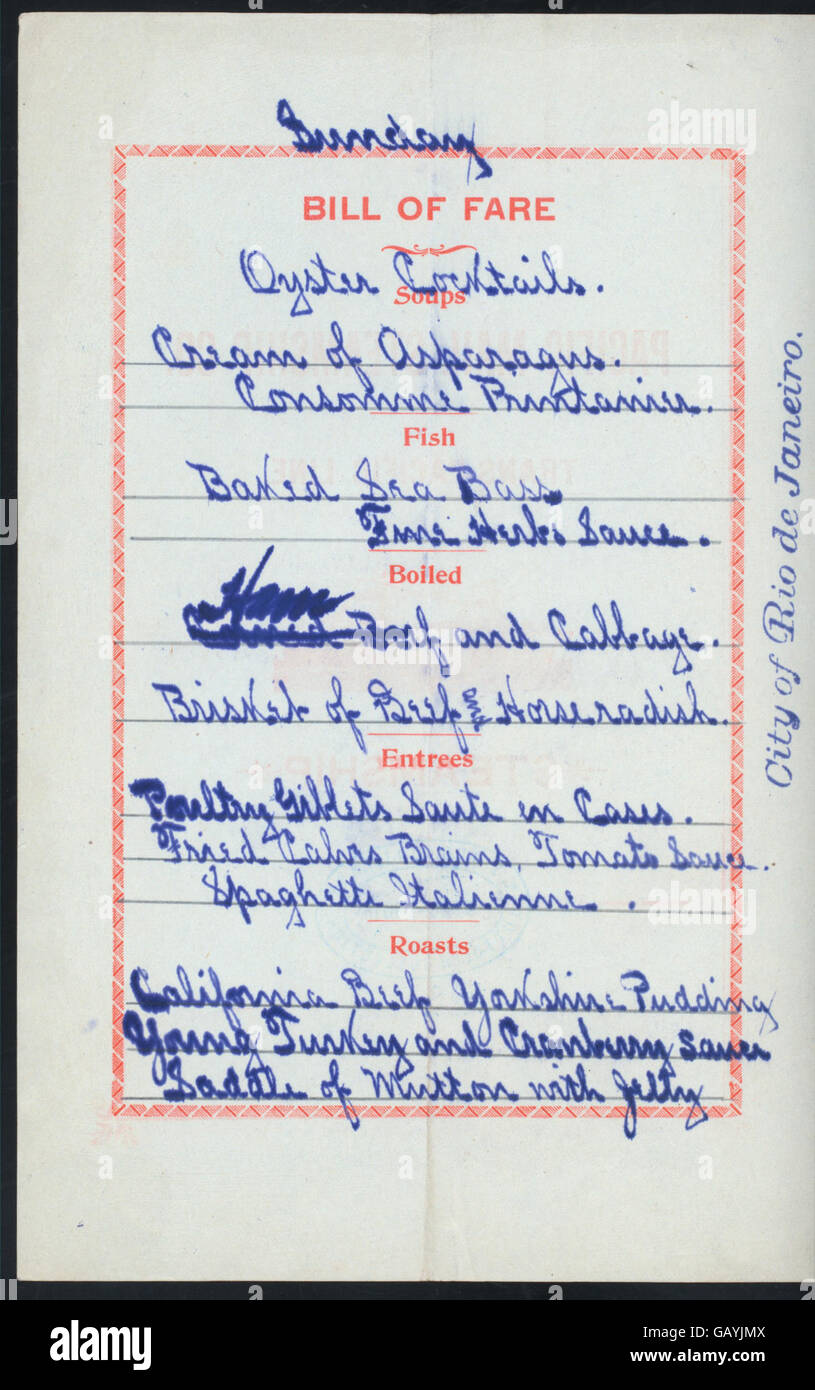 Sunday
BILL OF FARE
Oyster Cocktails.
Soups
Cream of Asparagus.
Consomme Printanier.
Fish
Baked Sea Bass
Fine Herbs Sauce.
Boiled
Ham
Corned Porf and Cabbage.
Brisket of Beef and Horseradish.
Entrees
Poultry Giblets Saute en Cases.
Fried Calves Brains, Tomato Sauce.
Spaghetti Italienne.
Roasts
California Beef Yorkshire Pudding
Young Turkey and Cranberry Sauce
Saddle of Mutton with Jelly
City of Rio de Janeiro.
PACIFIC MAIL STEAMSHIP CO.
TRANS-PACIFIC LINE
STEAMSHIP
alamy
Image ID: GAYJMX
www.alamy.com